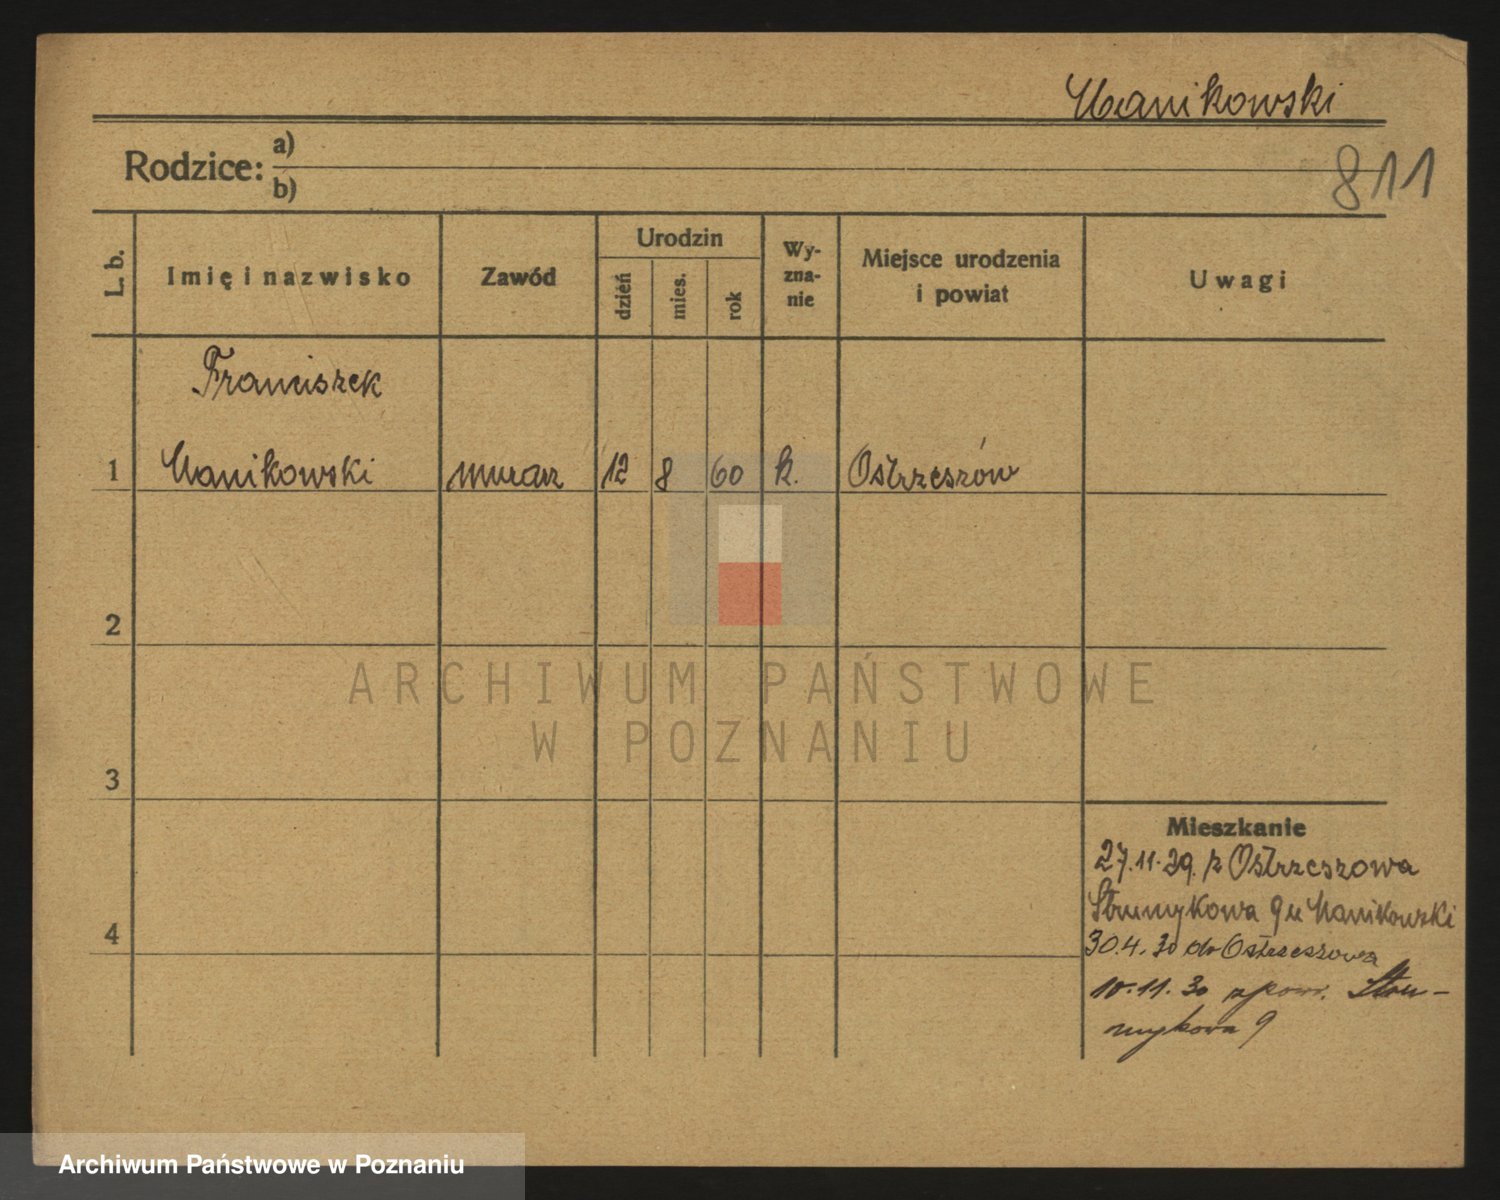 Manikowski
811
Rodzice: a)
b)
L. b.
Imię i nazwisko
Zawód
Urodzin
dzień
mies.
rok
Wy-
zna-
nie
Miejsce urodzenia
i powiat
Uwagi
Franciszek
1 Manikowski murarz 12 8 60 k. Ostrzeszów
2
3
4
Mieszkanie
27.11.29. z Ostrzeszowa
Strumykowa 9 u Manikowski
30.4.30 do Ostrzeszowa
10.11.30 z pow. Stru-
mykowa 9
ARCHIWUM PAŃSTWOWE
W POZNANIU
Archiwum Państwowe w Poznaniu